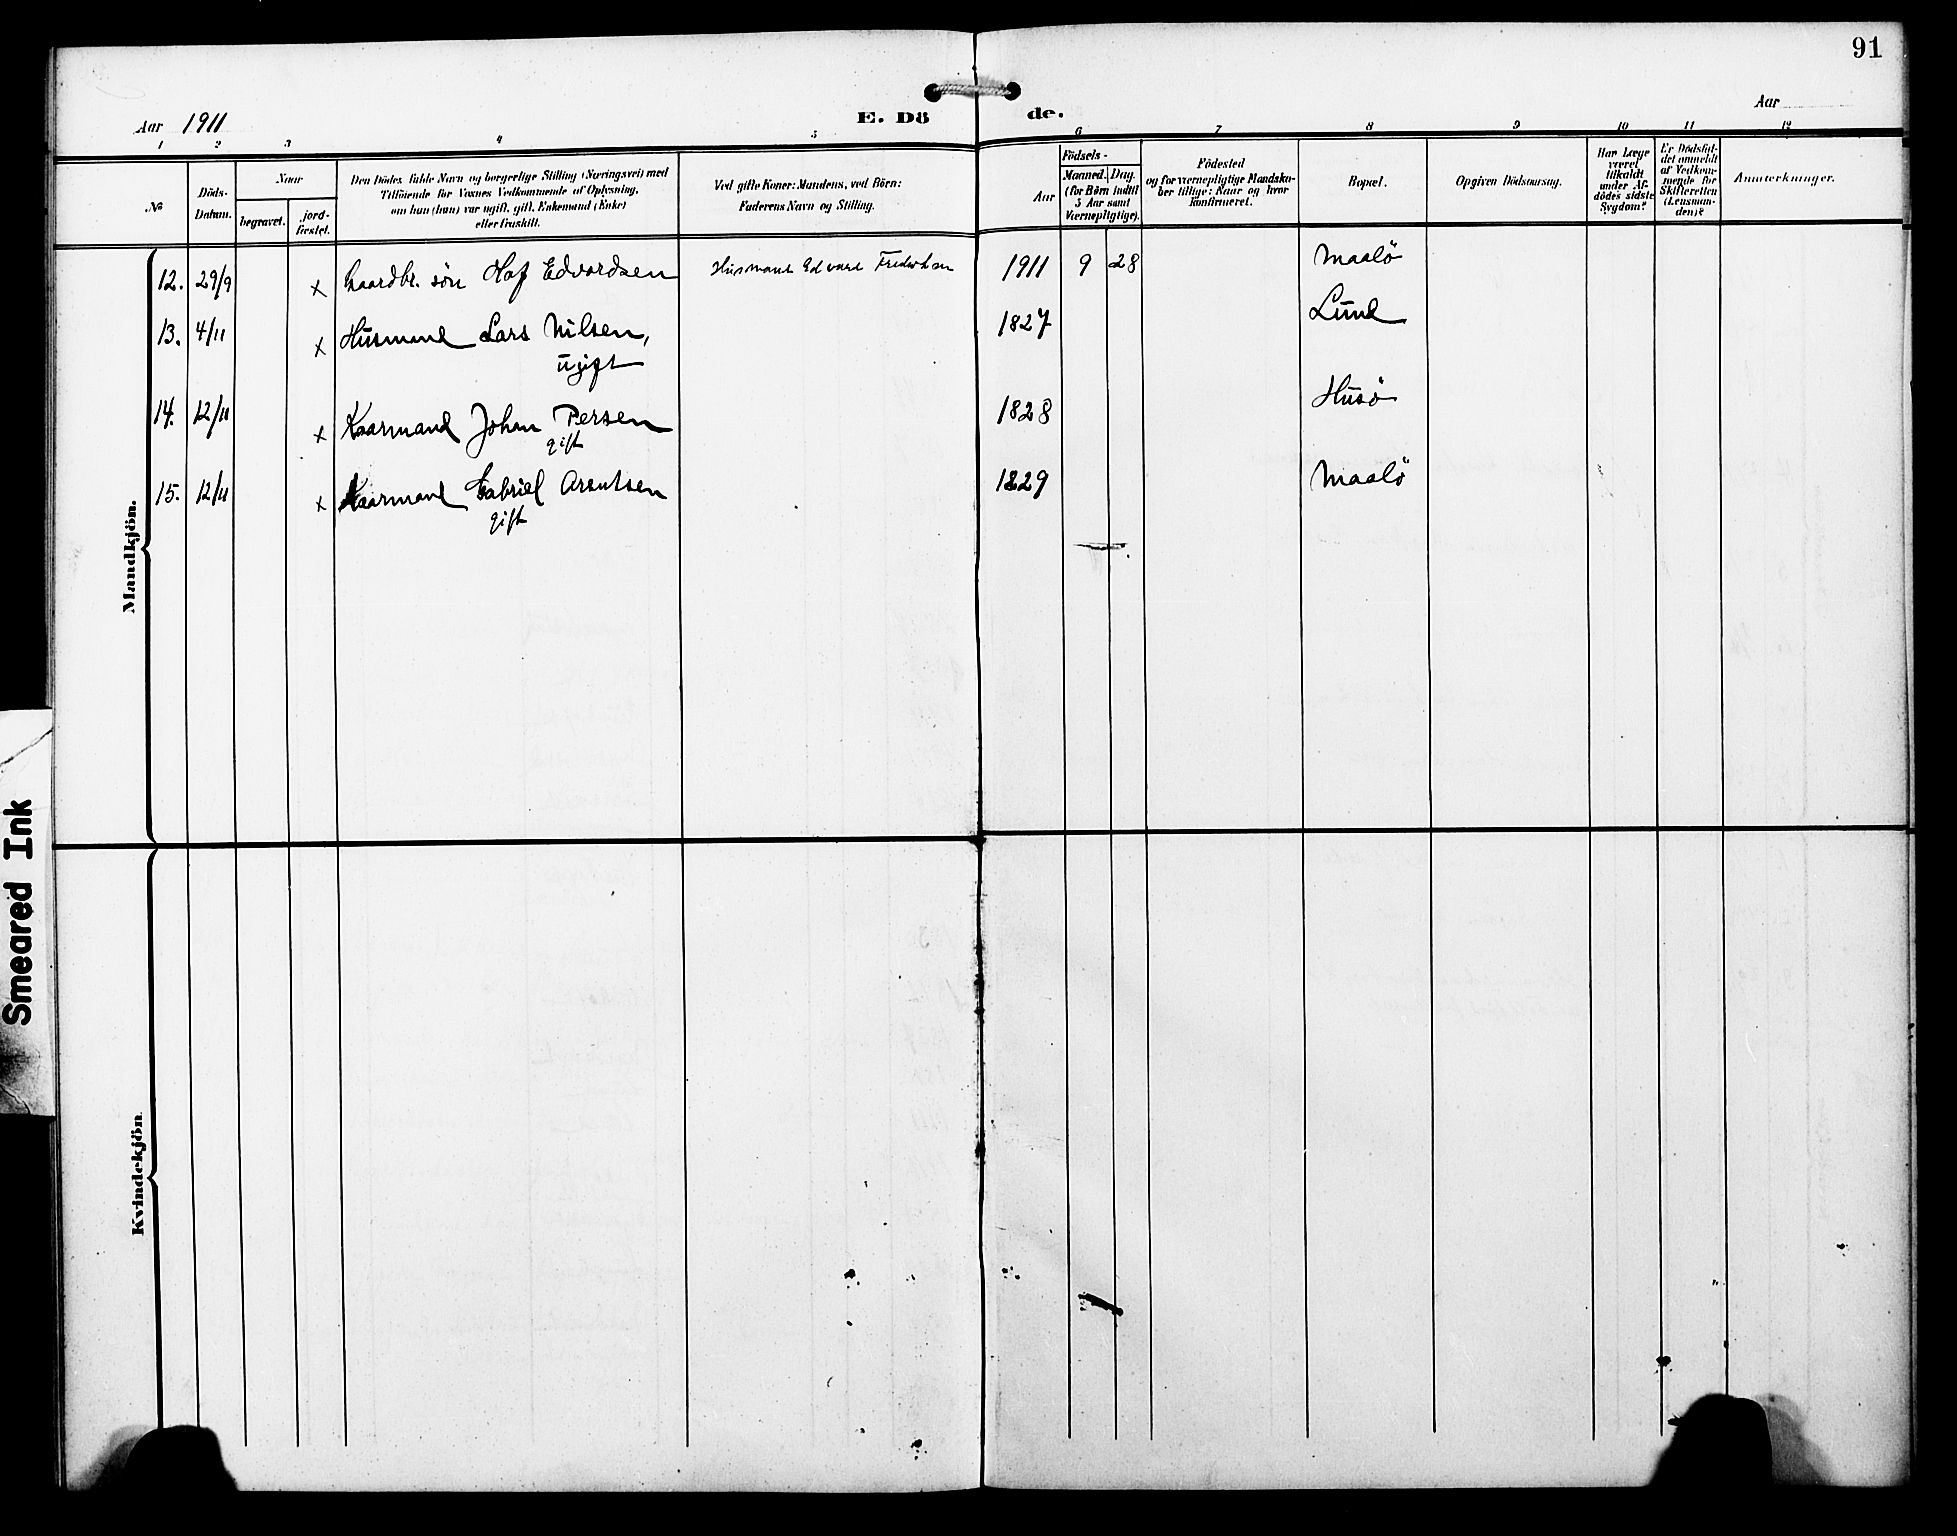 91
Aar 1911
E. Döde.
Aar
1 2 3 4 5 6 7 8 9 10 11 12
No
Döds-Datum.
Naar
begravet.
jord-fæstet.
Den Dödes fulde Navn og borgerlige Stilling (Næringsvei) med
Tilföiende for Voxnes Vedkommende af Oplysning,
om han (hun) var ugift, gift, Enkemand (Enke)
eller fraskilt.
Ved gifte Koner: Mandens, ved Börn:
Faderens Navn og Stilling.
Födsels-
Aar
Maaned. Dag.
(for Börn indtil
5 Aar samt
Værnepligtige).
Födested
og for værnepligtige Mandska-
ber tillige: Naar og hvor
konfirmeret.
Bopæl.
Opgiven Dödsaarsag.
Har Læge
været
tilkaldt
under Af-
dödes sidste
Sygdom?
Er Dödsfal-
det anmeldt
af Vedkom-
mende for
Skifteretten
(Lensman-
den)?
Anmærkninger.
Mandkjön.
12. 29/9 x Gaardbr. sön Edvardsen Husmand Edvard 1911 9 28 Maalö
13. 4/11 x Husmand Lars Nilsen, 1827 Lund
ugift
14. 12/11 x Kaarmand Johan Persen 1828 Husö
gift
15. 12/11 x Kaarmand Gabriel Arentsen 1829 Maalö
gift
Kvindekjön
Smeared Ink